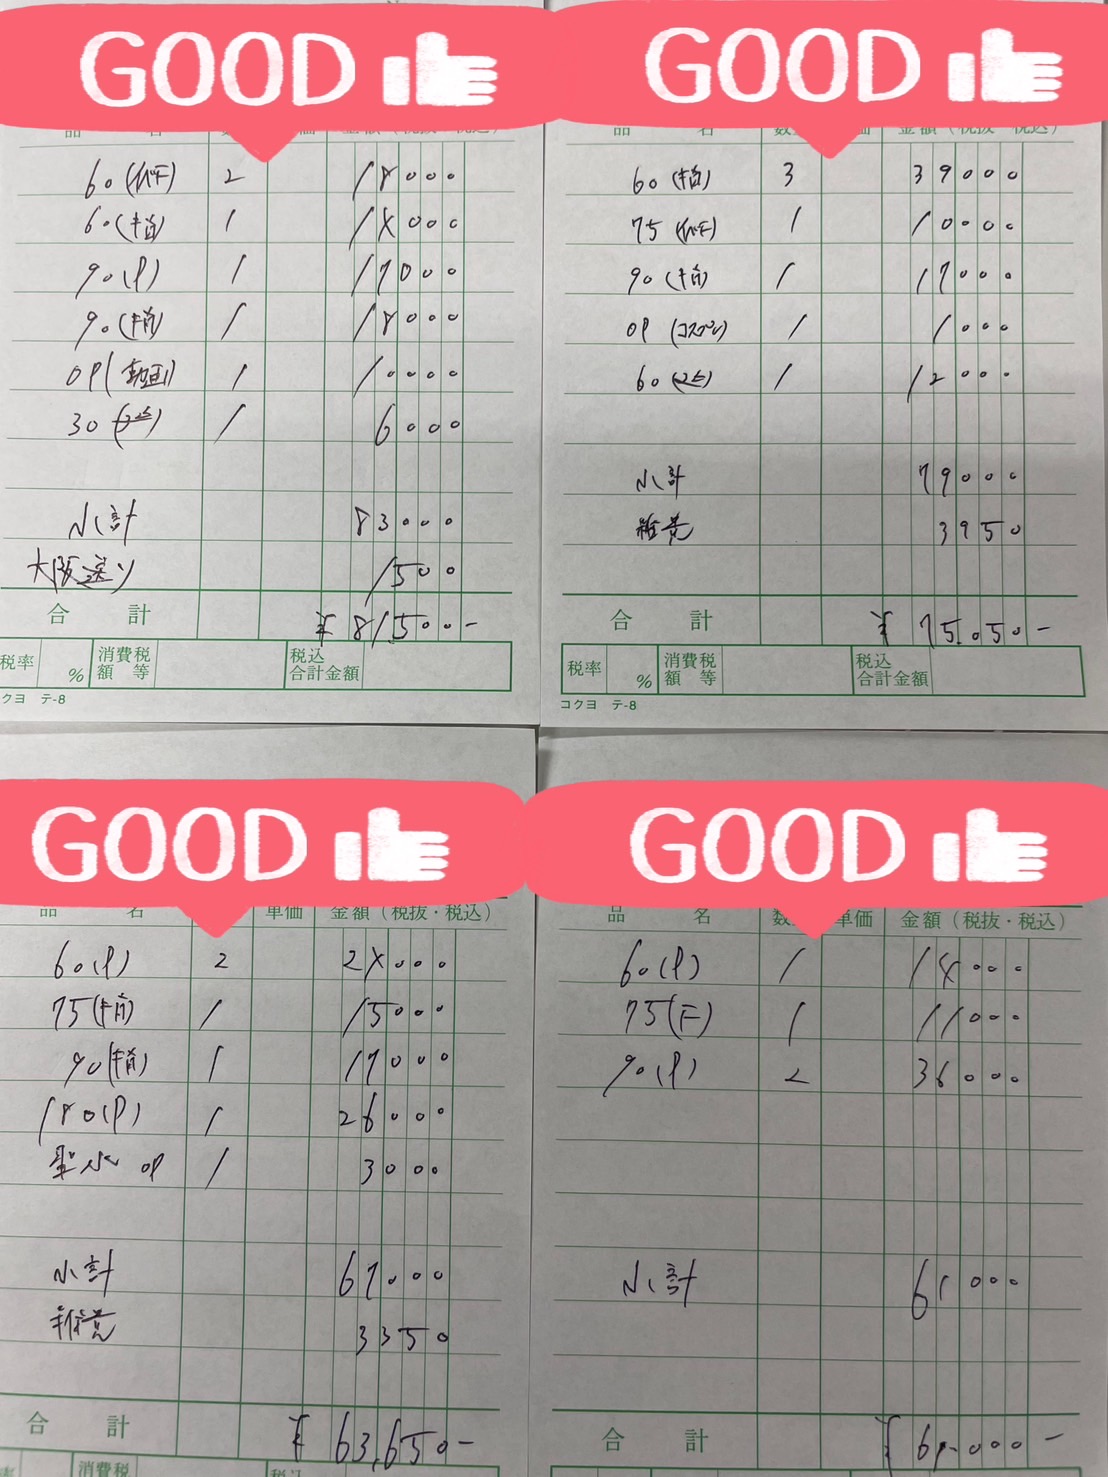 GOOD
品 名 金額(税抜・税込)
60 2 18000
60 1 14000
90(P) 1 17000
90 1 18000
OP(動画) 1 10000
30 1 6000
小計 83000
大阪送り 1500
合 計 ¥81500-
税率 % 消費税額等 税込合計金額
コクヨ テ-8
GOOD
品 名 金額(税抜・税込)
60 3 39000
75 1 10000
90 1 17000
OP(コスプレ) 1 1000
60 1 12000
小計 79000
3950
合 計 ¥75.050-
税率 % 消費税額等 税込合計金額
コクヨ テ-8
GOOD
品 名 単価 金額(税抜・税込)
60(P) 2 24000
75 1 15000
90 1 17000
180(P) 1 26000
聖水 OP 1 3000
小計 67000
3350
合 計 ¥63,650-
消費税
GOOD
品 名 単価 金額(税抜・税込)
60(P) 1 14000
75(F) 1 11000
90(P) 2 36000
小計 61000
合 計 ¥61.000-